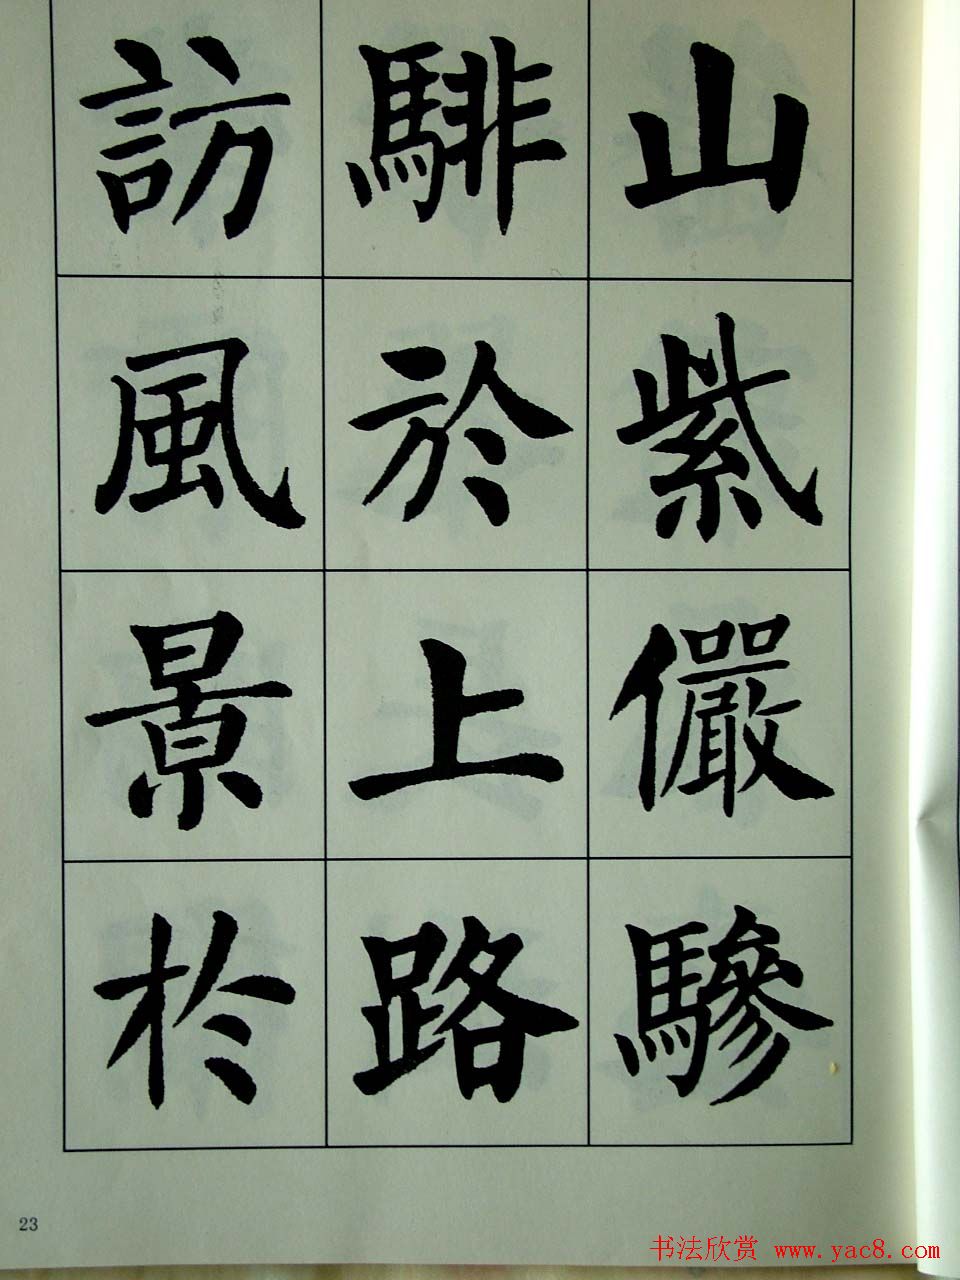 山紫儼驂
騑於上路
訪風景於
23
书法欣赏 www.yac8.com